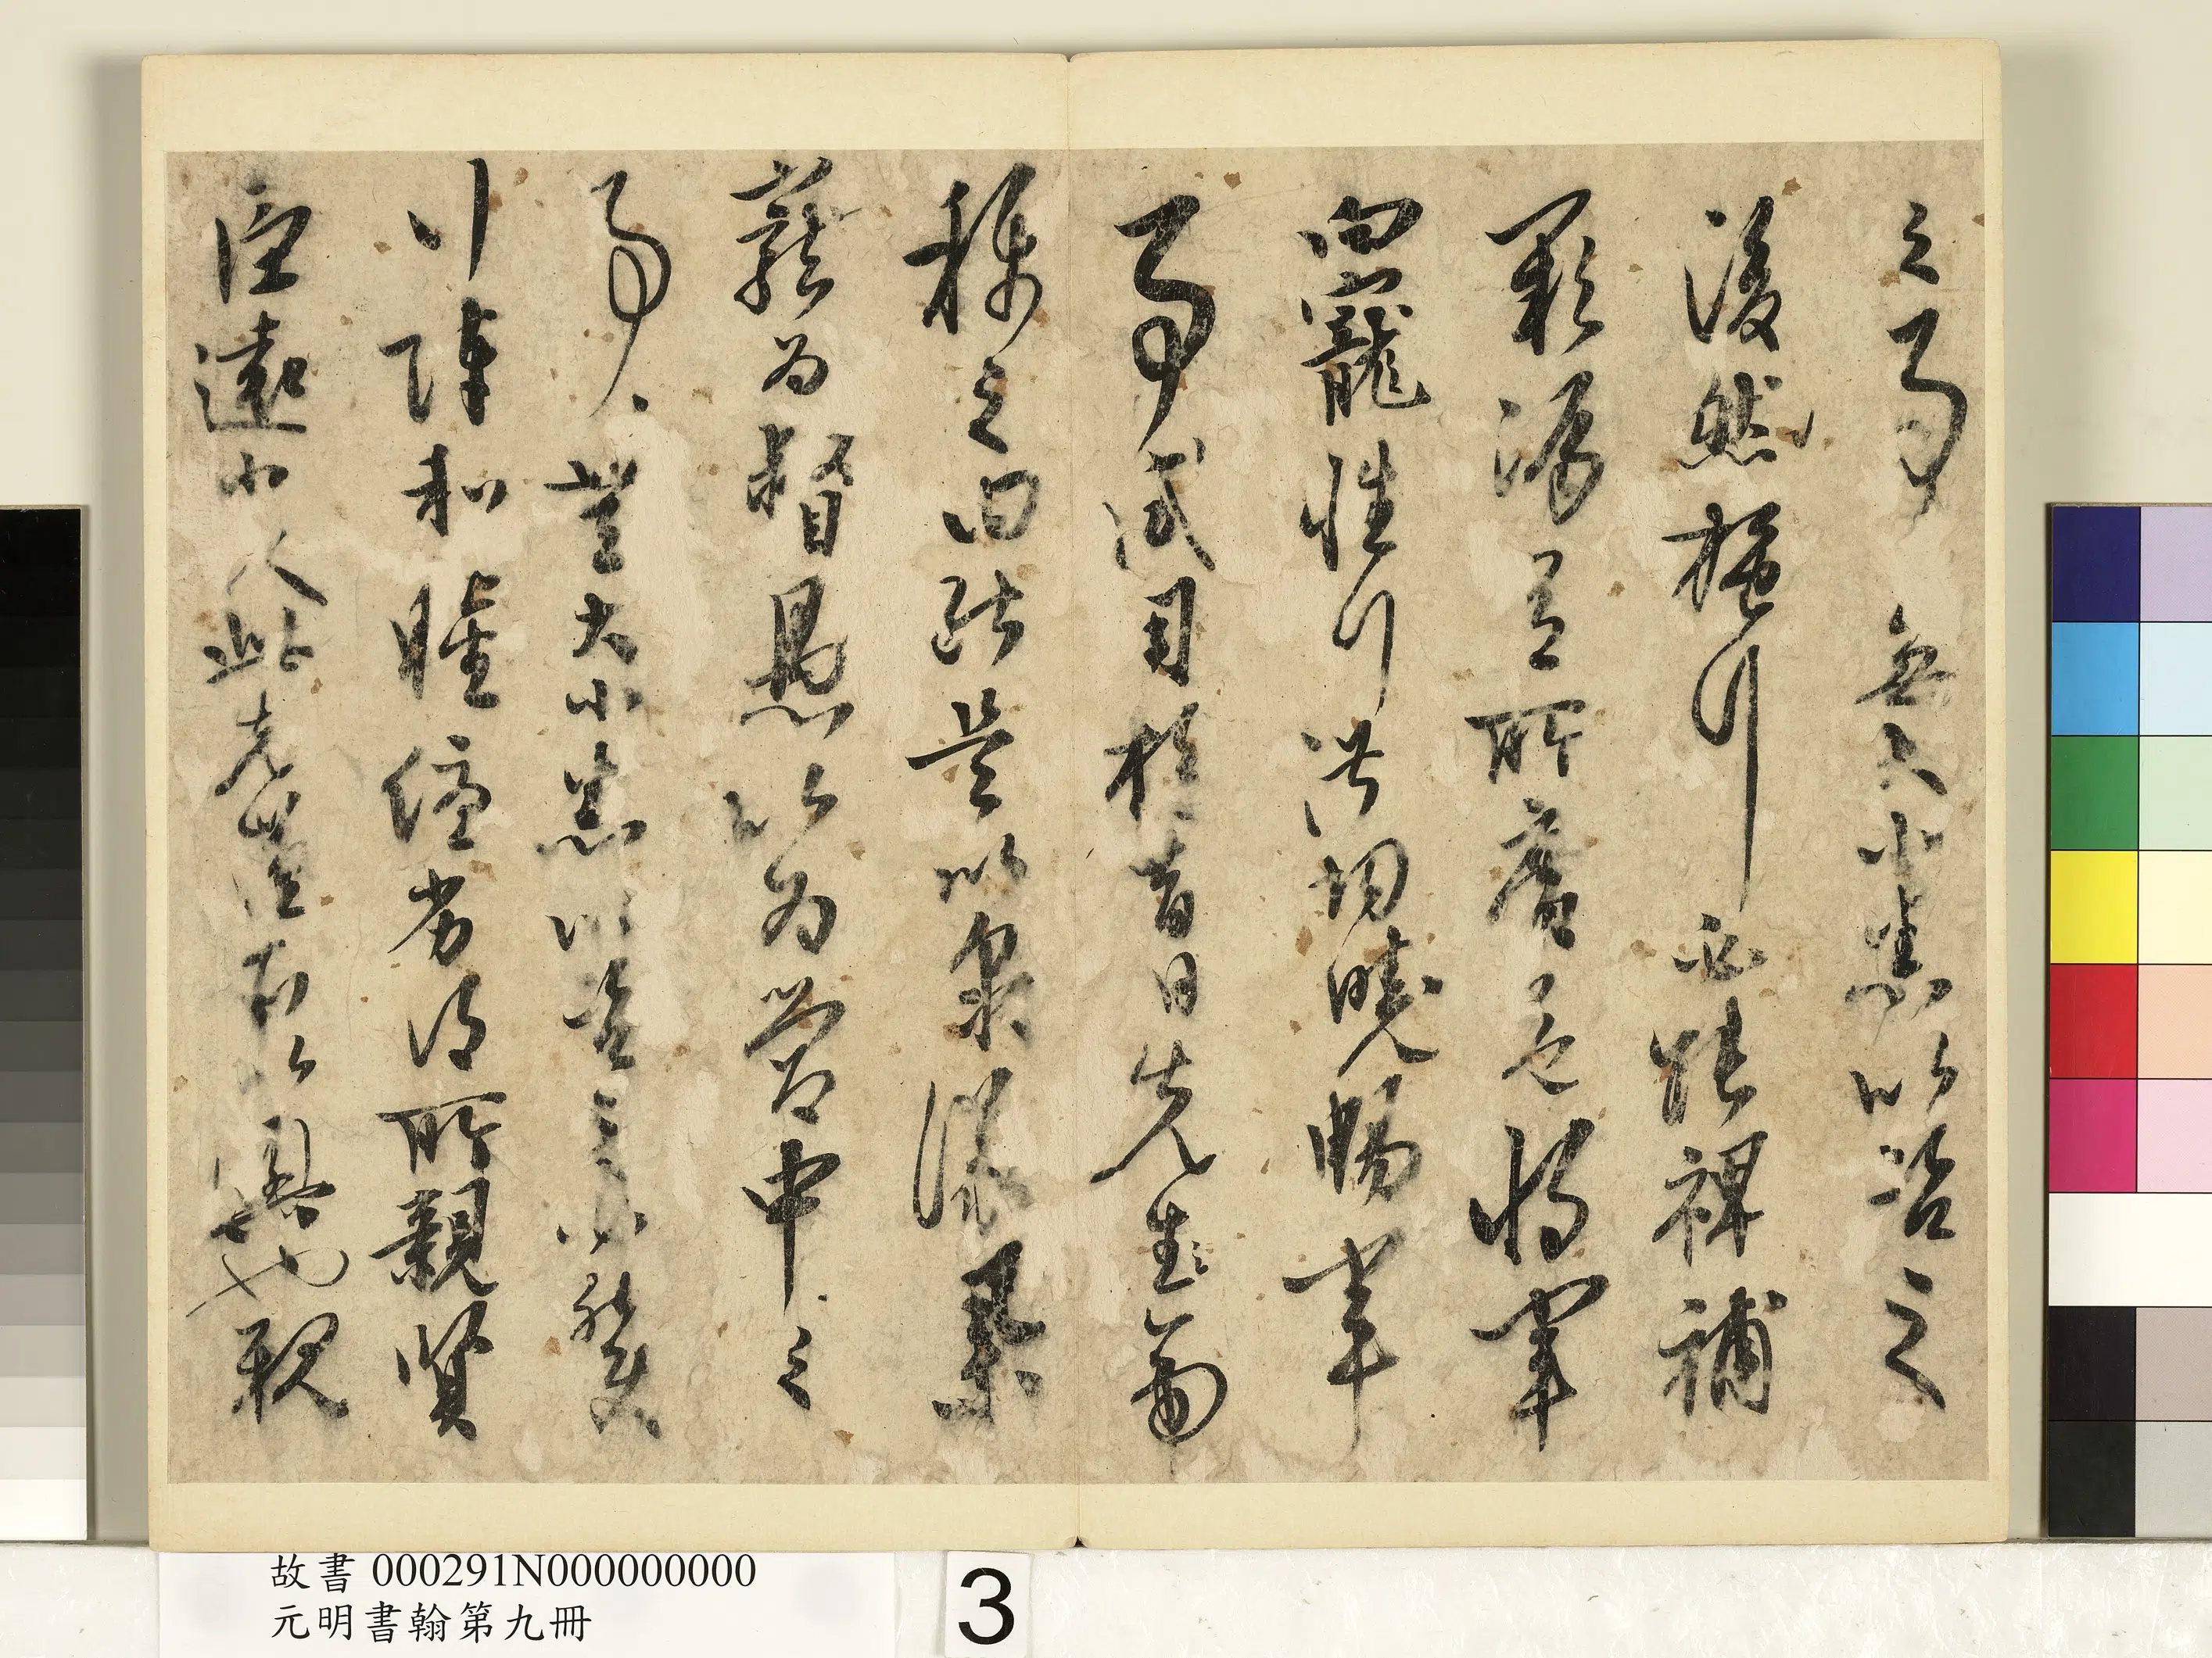 之事無大小悉以咨之
後然施行必能裨補
闕漏有所廣益將軍
向寵性行淑均曉暢軍
事試用於昔日先生帝
稱之曰能是以衆議舉
寵為督愚以為營中之
事無大小悉以咨之必能使
行陣和睦優劣得所親賢
臣遠小人此先漢所以興也親
故書 000291N000000000
元明書翰第九冊
3